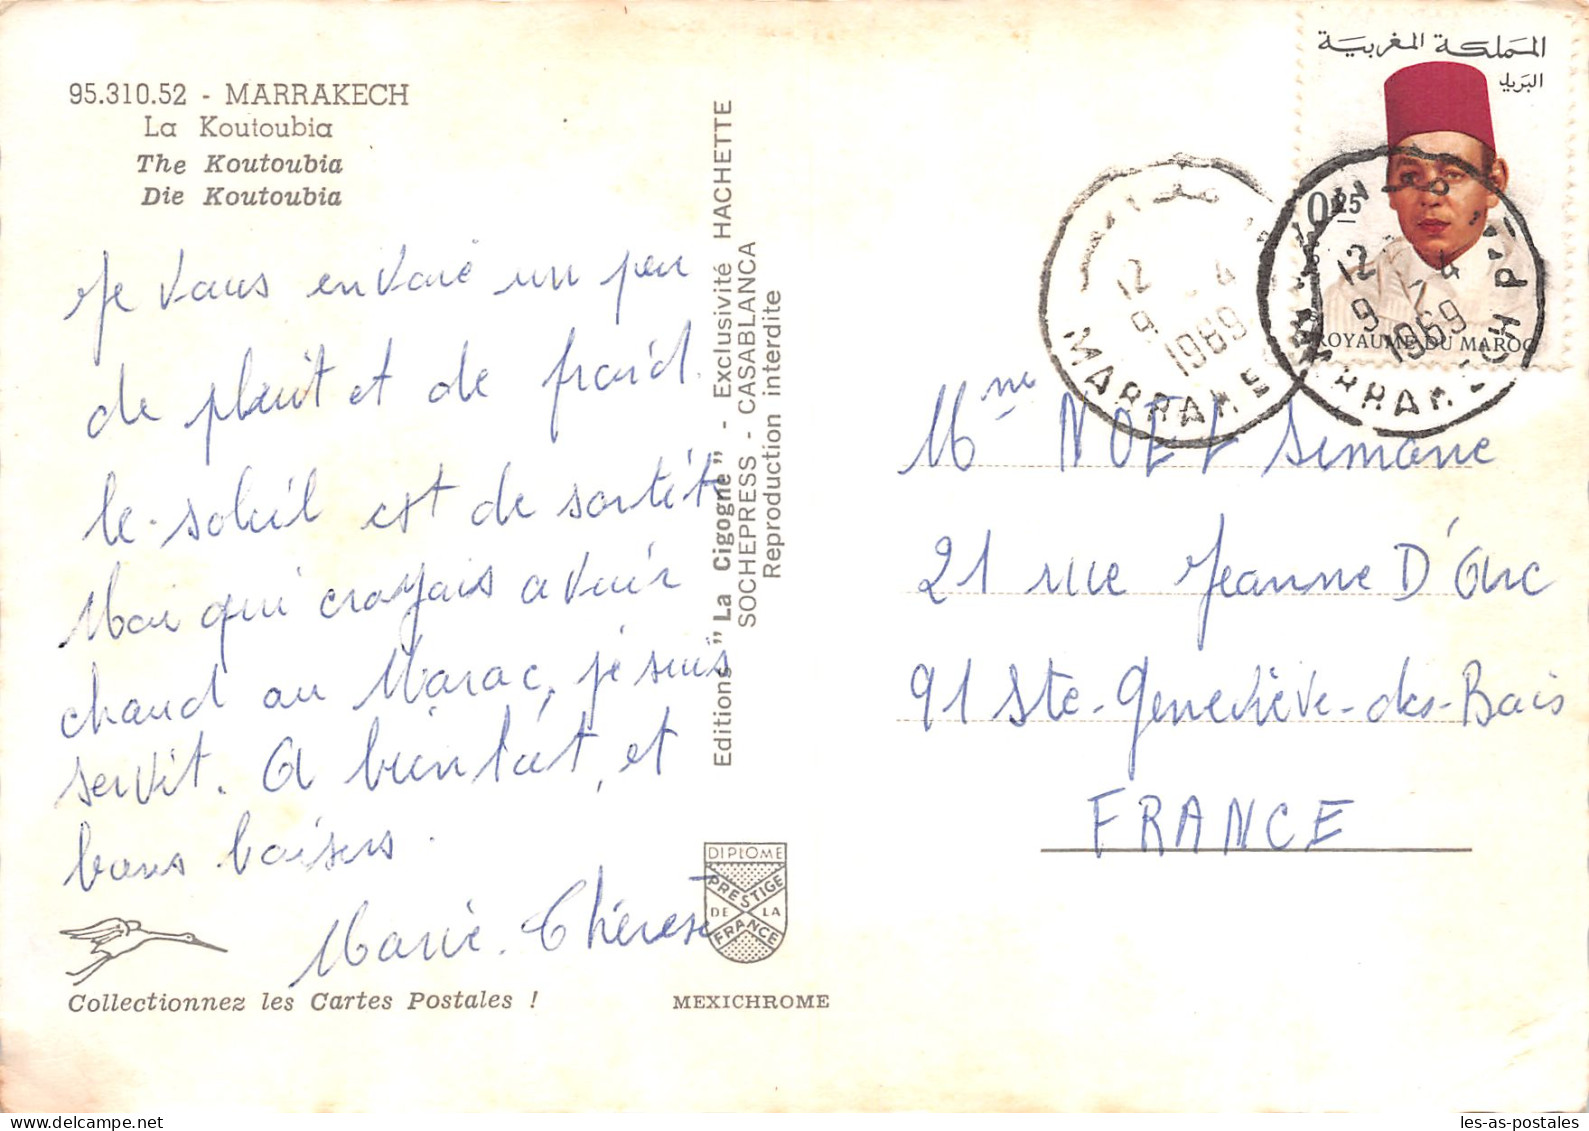 95.310.52 - MARRAKECH
La Koutoubia
The Koutoubia
Die Koutoubia
Je vous envoie un peu
de pluit et de froid.
le soleil est de sortit
Moi qui croyais avoir
chaud au Maroc, je suis
servit. A bientôt, et
bons baisers.
Marie-Thérèse
Collectionnez les Cartes Postales !
Editions "La Cigogne" - Exclusivité HACHETTE
SOCHEPRESS - CASABLANCA
Reproduction interdite
DIPLOME
PRESTIGE
DE LA
FRANCE
MEXICHROME
المملكة المغربية
البريد
0,25
ROYAUME DU MAROC
12 4
9
1969
MARRAKE
12 4
9
1969
MARRAKECH P
Mme NOEL Simone
21 rue Jeanne D'Arc
91 Ste-Geneviève-des-Bois
FRANCE
les-as-postales.com